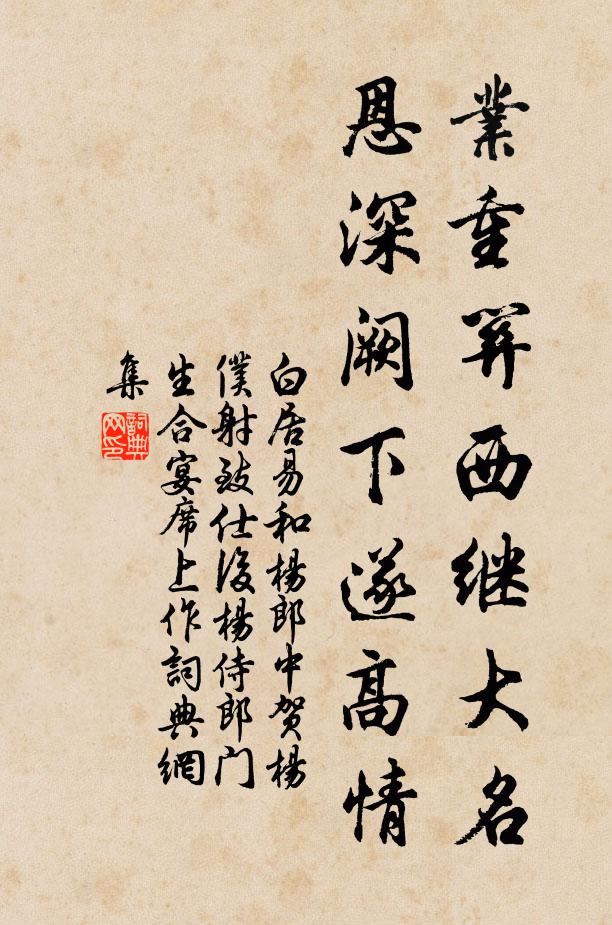 業重關西继大名
恩深阙下遂高情
白居易和楊郎中贺楊
僕射致仕後楊侍郎门
生合宴席上作詞典網
集
詞典
网印